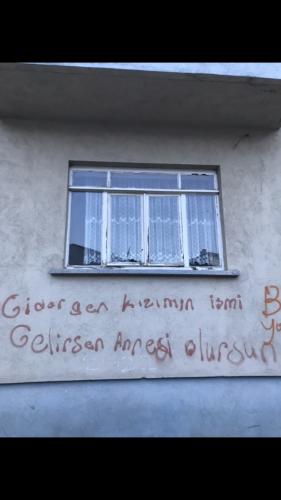 Gidersen kızımın ismi
Gelirsen Annesi olursun